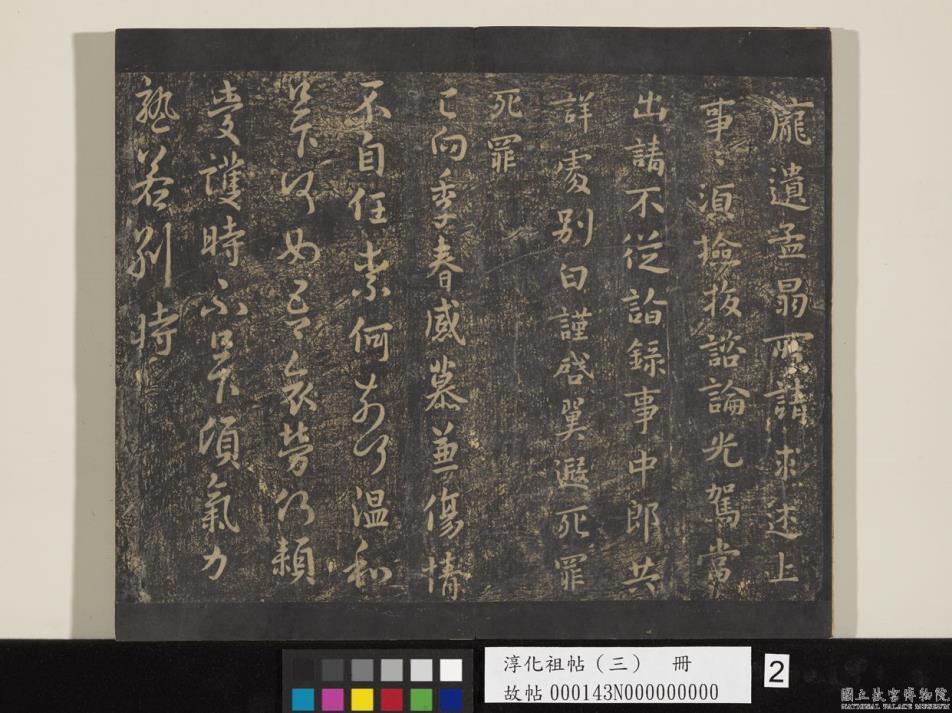 龐遺孟昺所請求述上
事〻須撿校諮論光駕當
出請不從詣錄事中郎共
詳處別白謹啓翼遐死罪
死罪
已向季春感慕兼傷情
不自任奈何前得溫和
哀勞得類
愛護時不須氣力
若別時
淳化祖帖（三） 冊
故帖 000143N000000000
2
國立故宮博物院
NATIONAL PALACE MUSEUM